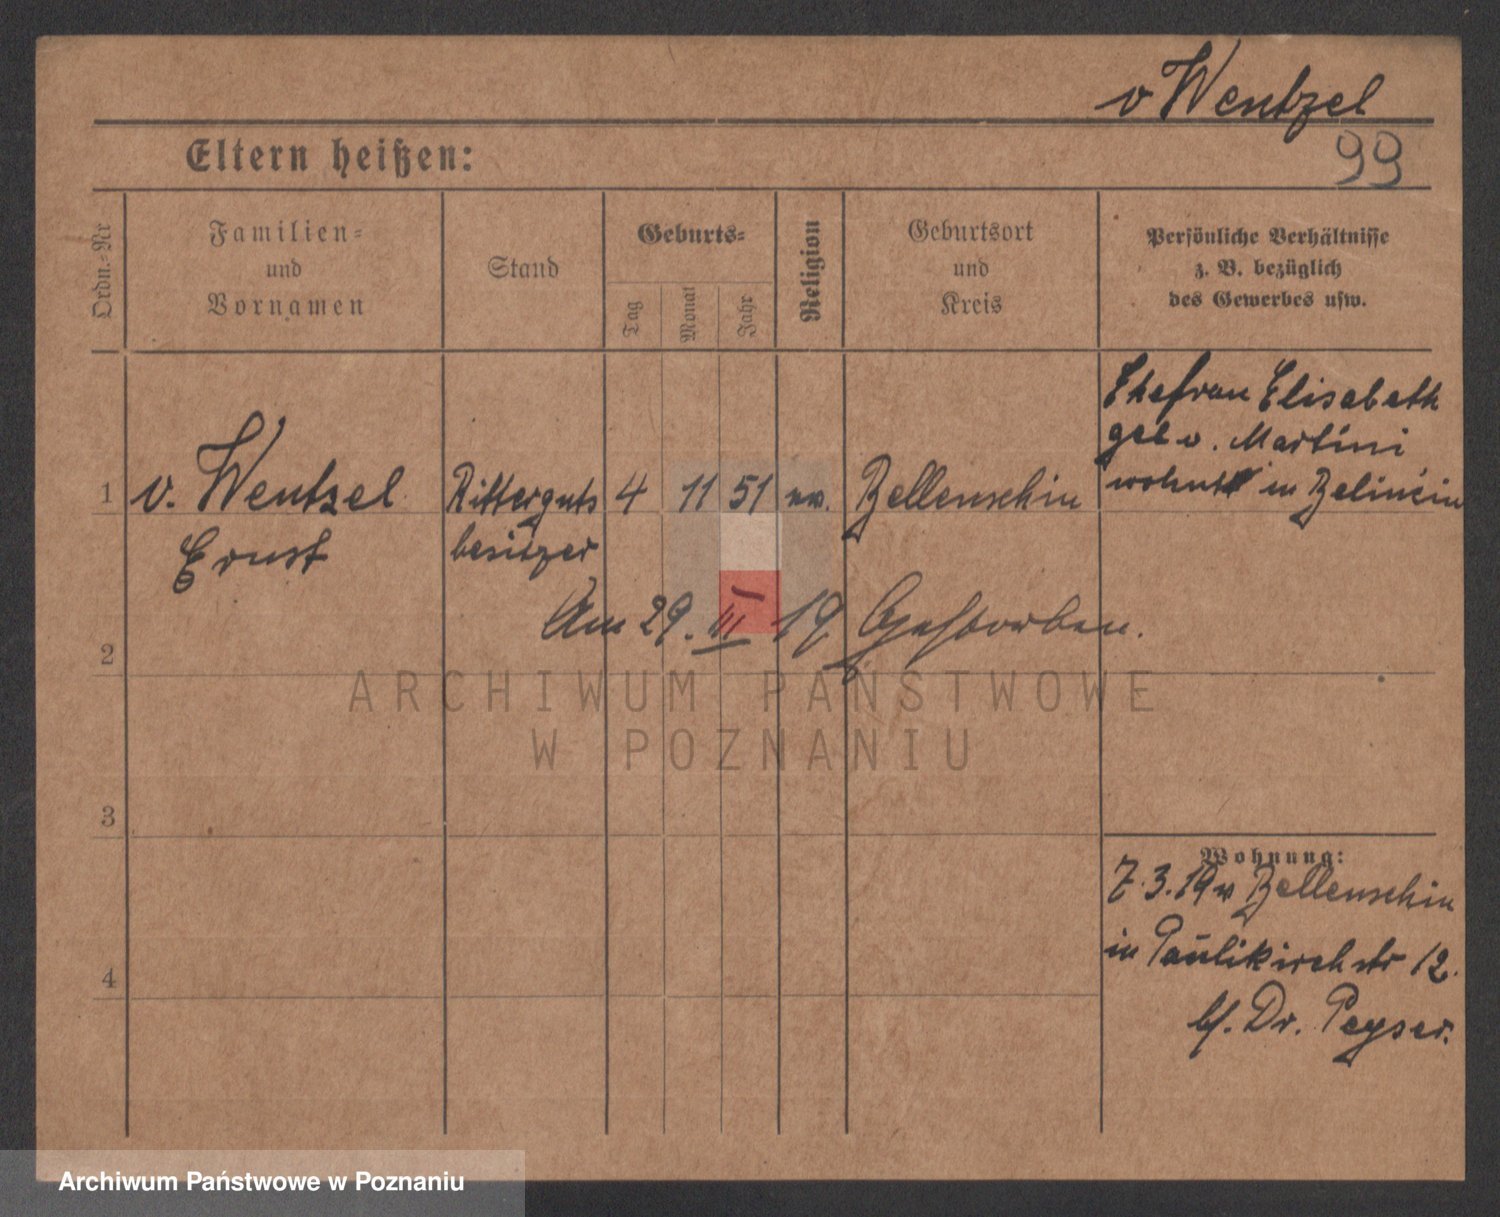 v Wentzel
Eltern heißen:
99
Ordn.-Nr
Familien-
und
Vornamen
Stand
Geburts-
Tag
Monat
Jahr
Religion
Geburtsort
und
Kreis
Persönliche Verhältnisse
z. B. bezüglich
des Gewerbes usw.
Ehefrau Elisabeth
geb v. Martini
wohnt in
1 v. Wentzel Ritterguts 4 11 51 ev. Bellenschin
Ernst besitzer
Am 29. III 19 Gestorben.
2
ARCHIWUM PAŃSTWOWE
W POZNANIU
3
Wohnung:
7.3.19 v Bellenschin
4
in Paulikirchstr 12.
bf. Dr. Peyser.
Archiwum Państwowe w Poznaniu